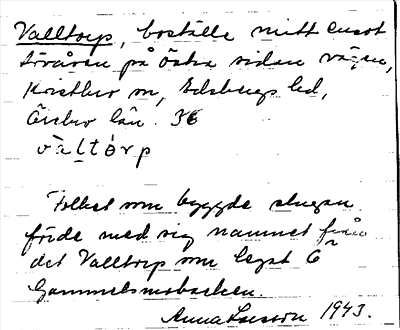 Valltorp, boställe mitt emot
Kvistbro sn, Edsbergs hd,
Örebro län. 36
vàltórp
Folket som byggde stugan
förde med sig namnet från
det Valltorp som legat i
Gammelsmobacken.
Anna Larsson 1943.